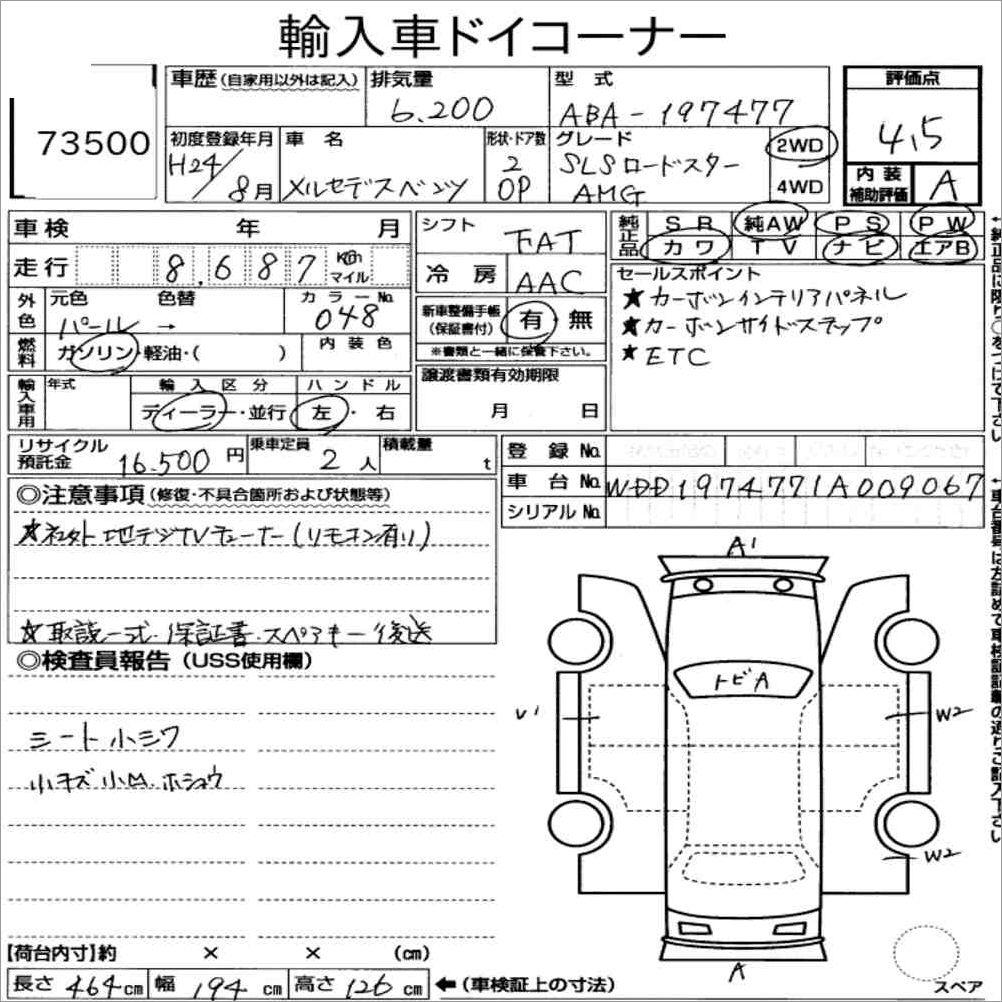 輸入車ドイコーナー
73500
車歴(自家用以外は記入) 排気量 型式 評価点
6.200 ABA-197477 4.5
初度登録年月 車名 形状・ドア数 グレード 2WD
H24/8月 メルセデスベンツ 2 OP SLSロードスター AMG 4WD
内装補助評価 A
車検 年 月
シフト FAT
純正品 SR 純AW PS PW
カワ TV ナビ エアB
走行 8,687 Km マイル
冷房 AAC
セールスポイント
★カーボンインテリアパネル
★カーボンサイドステップ
★ETC
外色 元色 色替 カラーNo.
パール → 048
新車整備手帳(保証書付) 有 無
※書類と一緒に保管下さい。
燃料 ガソリン・軽油・( ) 内装色
輸入車用 年式 輸入区分 ハンドル
ディーラー・並行 左・右
譲渡書類有効期限
月 日
リサイクル預託金 16.500円 乗車定員 2人 積載量 t
登録No.
車台No. WDD1974771A009067
シリアルNo.
◎注意事項(修復・不具合箇所および状態等)
★社外地デジTVチューナー(リモコン有り)
★取説一式・保証書・スペアキー後送
◎検査員報告(USS使用欄)
シート小シワ
小キズ小凹.ホショウ
A1
トビA
U1
W2
W2
A
スペア
【荷台内寸】約 × × (cm)
長さ464cm 幅194cm 高さ126cm ←(車検証上の寸法)